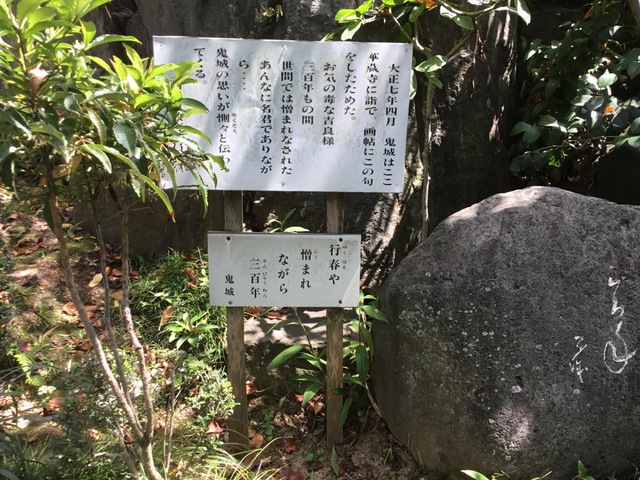 大正七年四月 鬼城はここ
華蔵寺に詣で、画帖にこの句
をしたためた。
お気の毒な吉良様
三百年もの間
世間では憎まれなされた
あんなに名君でありなが
ら…
鬼城の思いが惻々と伝わっ
てくる。
行春や
ゆくはる
憎まれ
にく
ながら
三百年
さんびゃくねん
鬼城